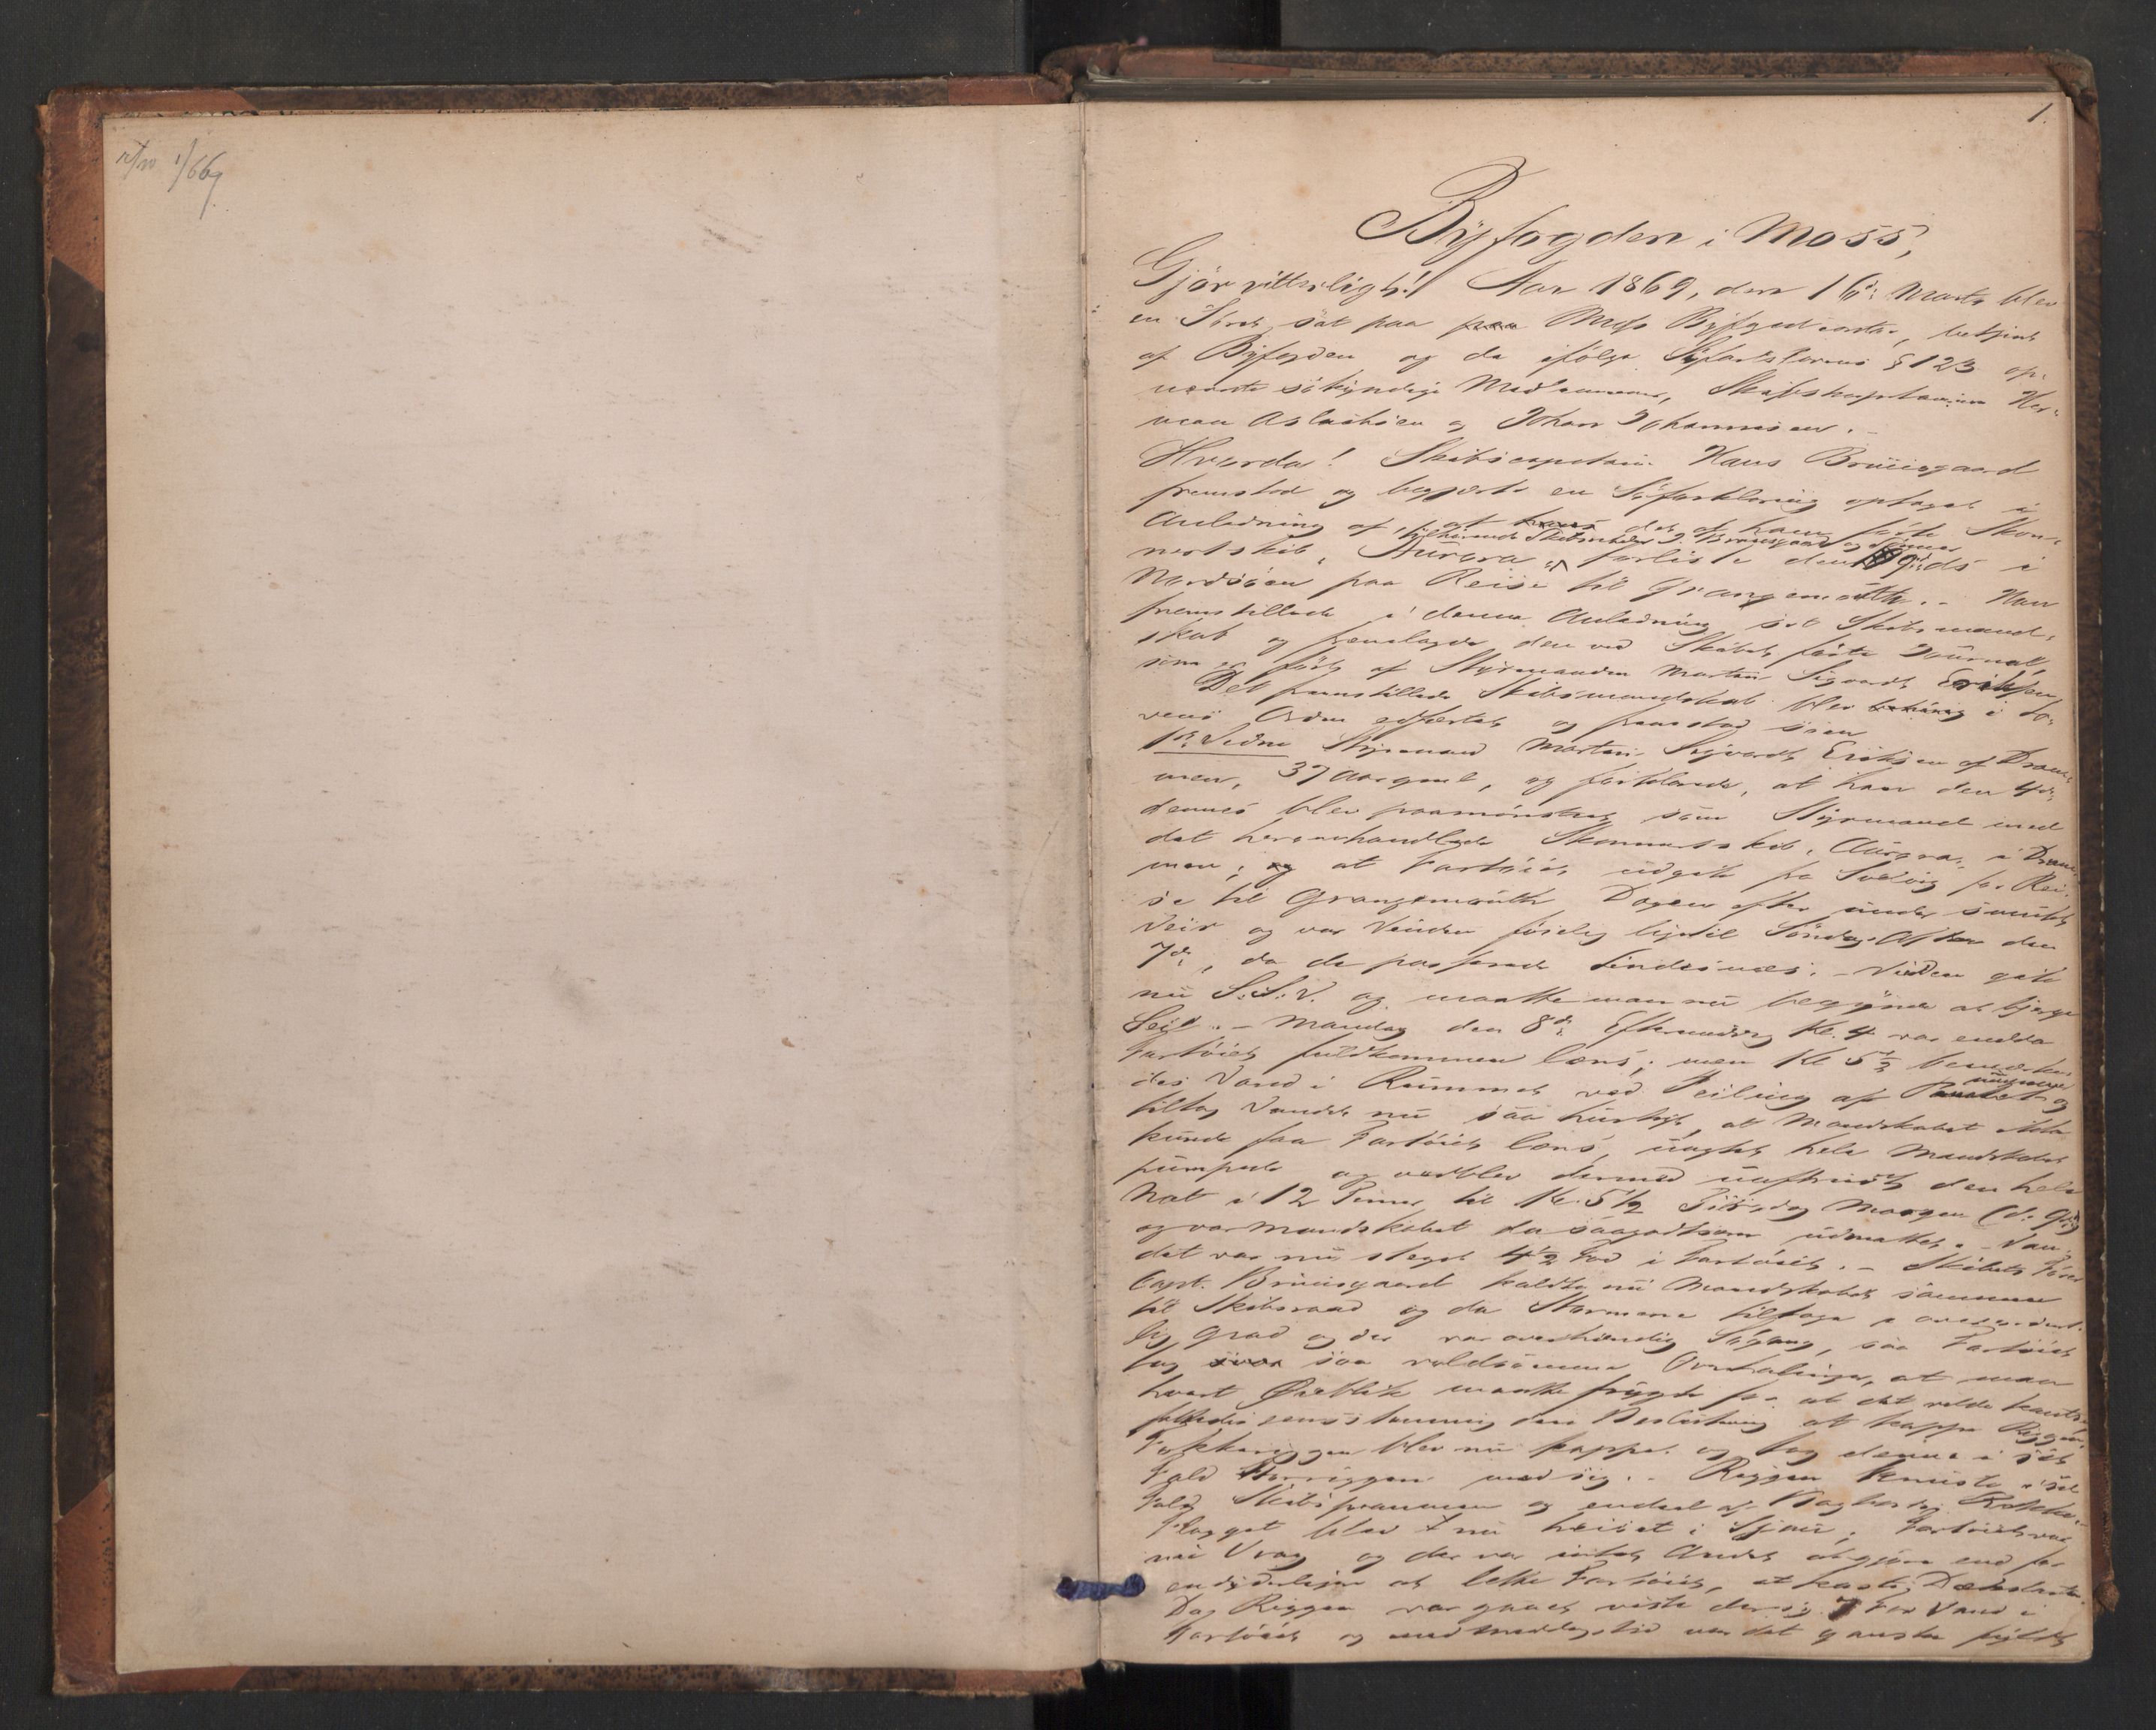 1/66
1.
Byfogden i Moss,
Gjör vitterligt! Aar 1869, den 16de Marts blev
en Söret sat paa paa Moss Byfogedcontor, betjent
af Byfogden og de ifölge Söfartslovens § 123 op-
nævnte sökyndige Medlemmer, Skibskaptainerne Her-
man Aslaksen og Johan Johannesen. -
Hvorda! Skibscaptain Hans Bruusgaard
fremstod og begjærte en Söforklaring optaget i
Anledning af, at hans det af ham förte Skon-
tilhörende Skibsreder J. Bruusgaard og
nertskib "Aurora" forliste den 9de ds i
Nordsöen paa Reise til Grangemouth. - Han
fremstillede i denne Anledning sit Skibsmand-
skab og fremlagde den ved Skibet förte Journal,
som er fört af Styrmanden Martin Sigvardt Eriksen
Det fremstillede Skibsmandskab blev i Lo-
vens Orden edfæstet og fremstod som
1ste Vidne Styrmand Martin Sigvardt Eriksen af Dram-
men, 37 Aar gammel, og forklarede, at han den 4de
dennes blev paamönstret som Styrmand med
det heromhandlede Skonnertskib "Aurora" i Dram-
men, og at Fartöiet udgik fra Svelvig for Rei-
se til Grangemouth Dagen efter under smukt
Veir og var Vinden föielig lige til Söndag Aften den
7de, da de passerede Lindesnæs. - Vinden gik
nu S.S.V. og maatte man nu begynde at bjerge
Seil. - Mandag den 8de Eftermiddag Kl. 4 var endda
Fartöiet fuldkommen læns; men Kl 5½
des Vand i Rummet ved Peiling af og
tiltog Vandet nu saa hurtigt, at Mandskabet ikke
kunde faa Fartöiet læns, uagtet hele Mandskabet
pumpede og vedblev dermed uafbrudt den hele
Nat i 12 Timer til Kl. 5½ Tirsdag Morgen (d. 9de)
og var Mandskabet da saagodtsom udmattet. - Van-
det var nu steget 4½ Fod i Fartöiet. - Skibets Förer
Capt. Bruusgaard kaldte nu Mandskabet sammen
til Skibsraad og da Stormene tiltoge i overordent-
lig Grad og der var overhændig Sögang, saa Fartöiet
tog saa voldsomme Overhalinger, at man
hvert Öieblik maatte frygte for at det vilde kantre
fattedes eensstemmig den Beslutning at kappe Riggen.
Fokkeriggen blev nu kappet og tog denne i sit
Fald Storriggen med sig. - Riggen knuste i sit
Fald Skibsprammen og endeel af
Flagget blev nu heiset i Sjau; Fartöiet var
nu Vrag og der var intet Andet at gjöre end for
end yderligere at lette Fartöiet, at kaste Dækslasten.
Da Riggen var gaaet viste der sig Fod Vand i
Fartöiet og ved Middagstid var det ganske fyldt